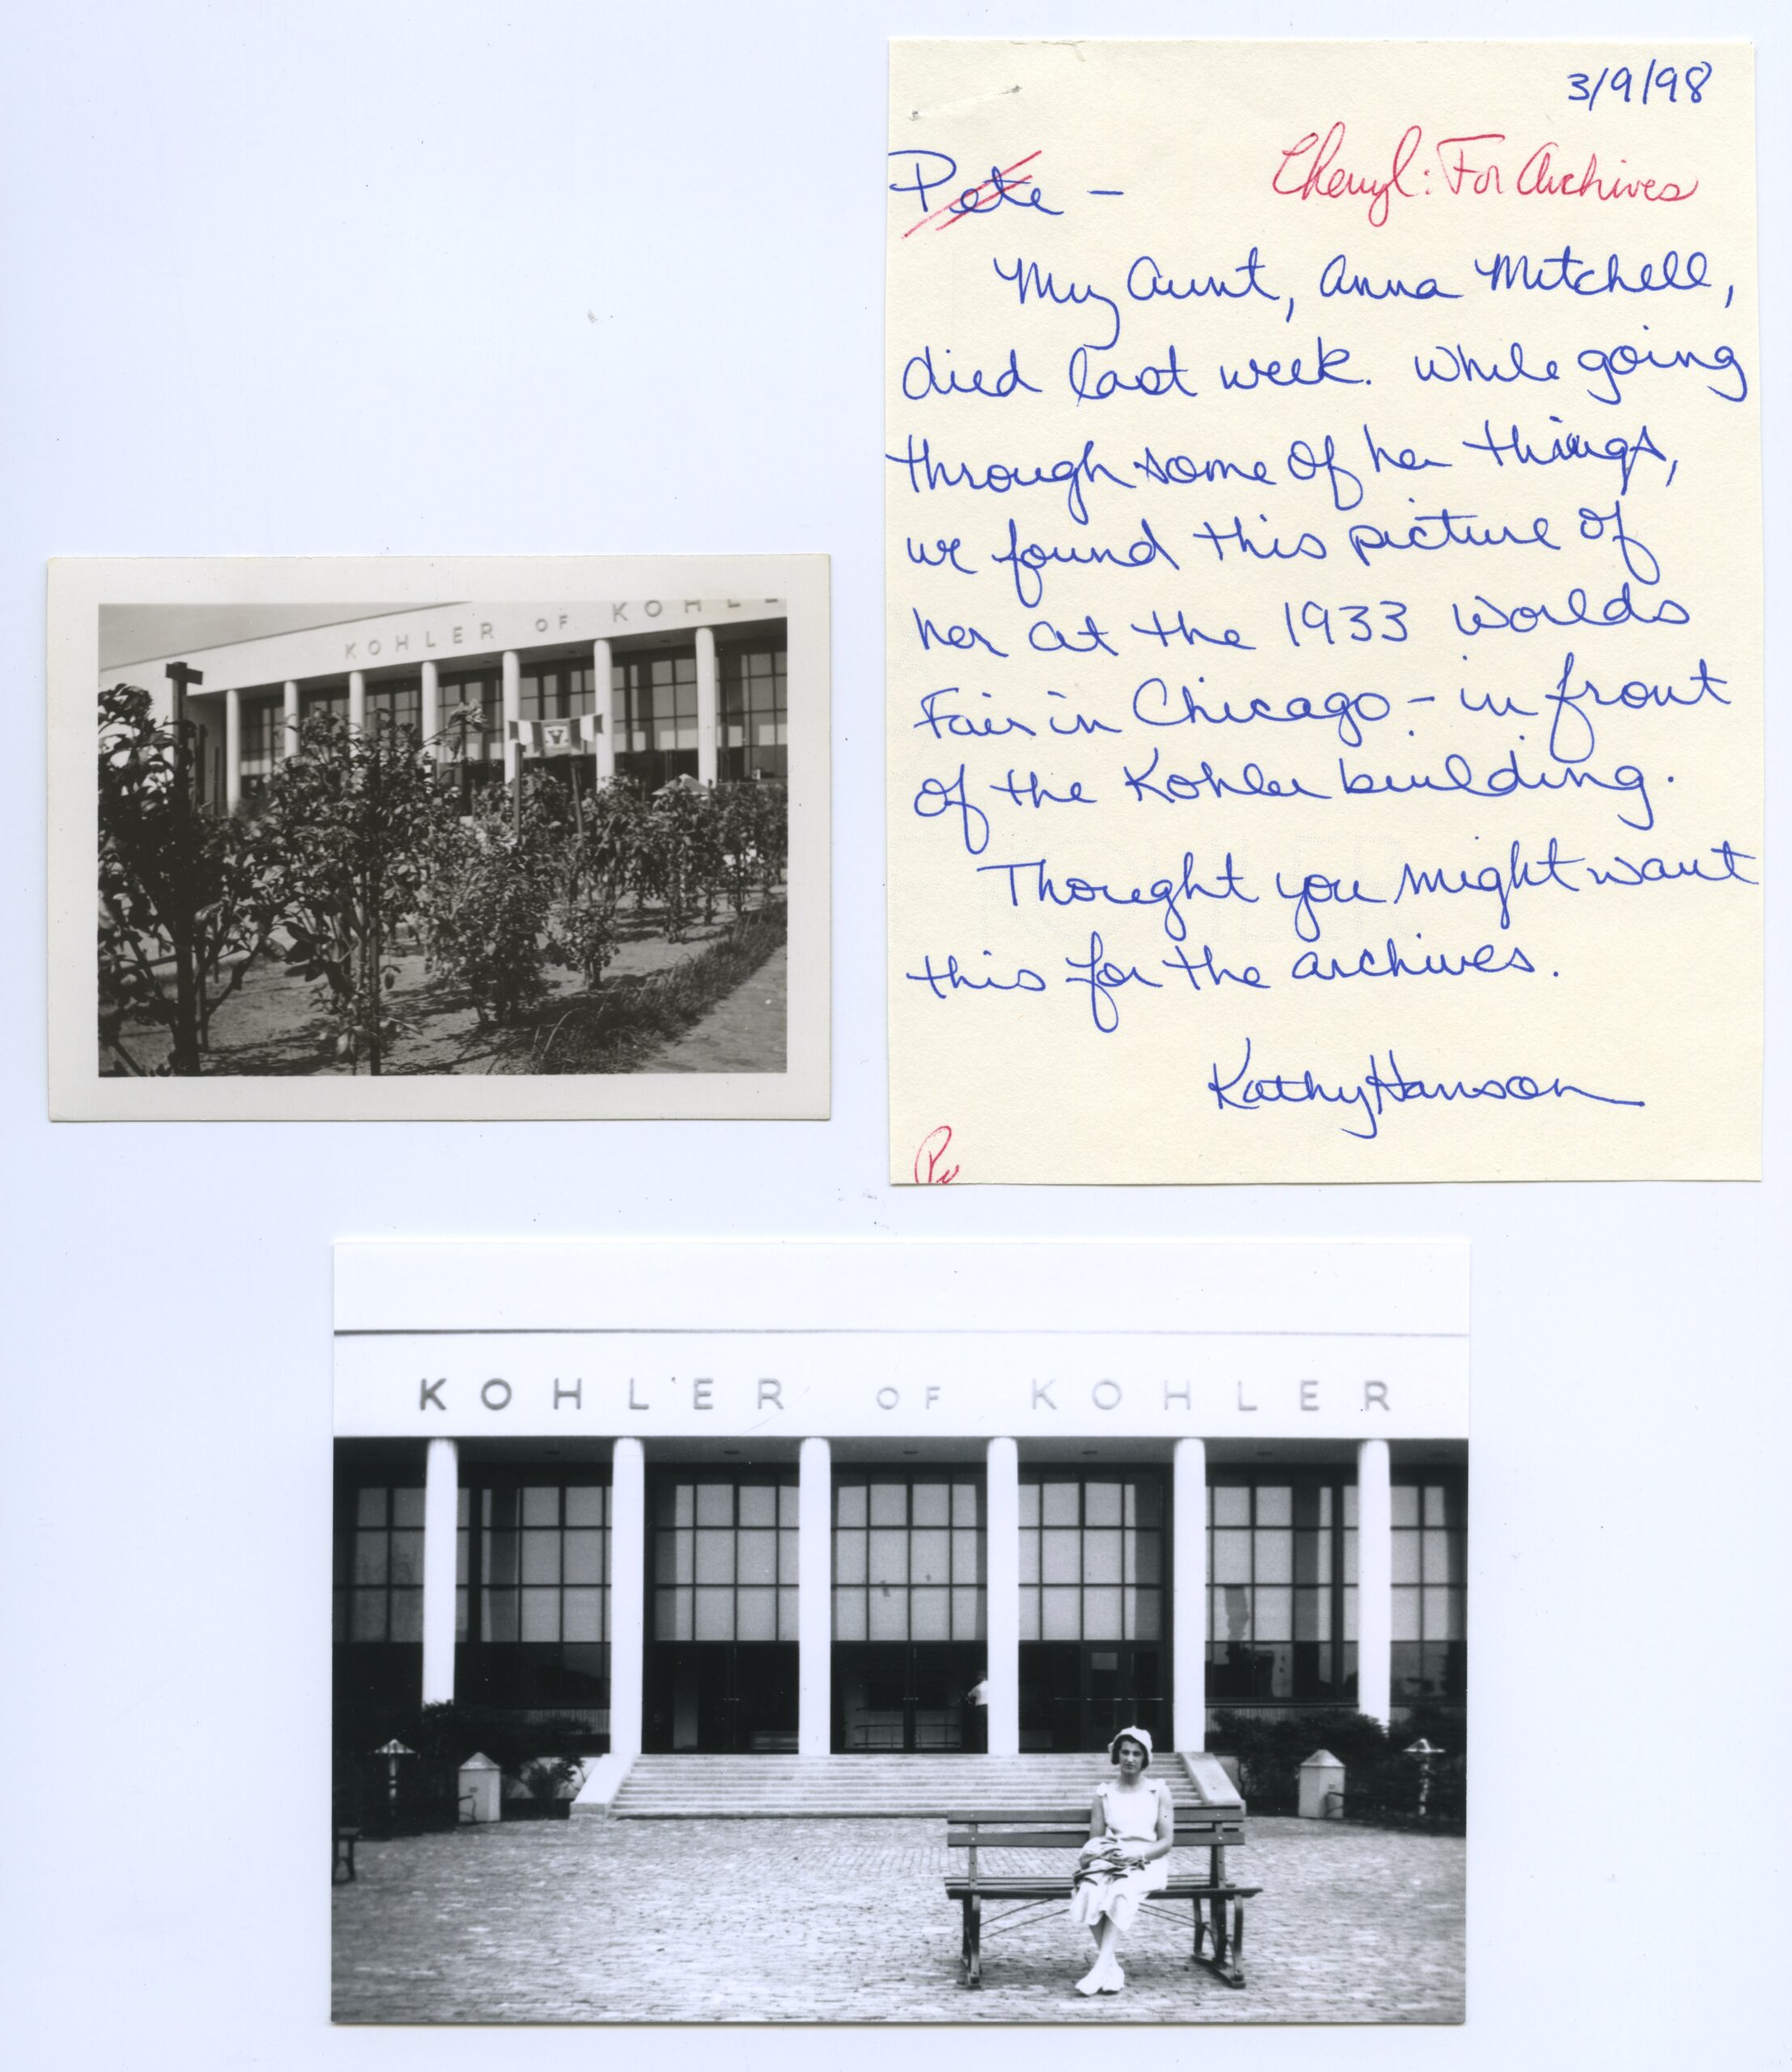 3/9/98
Pete -
Cheryl: For Archives
My Aunt, Anna Mitchell,
died last week. While going
through some of her things,
we found this picture of
her at the 1933 Worlds
Fair in Chicago - in front
of the Kohler building.
Thought you might want
this for the archives.
Kathy Hanson
KOHLER OF KOHLE
KOHLER OF KOHLER